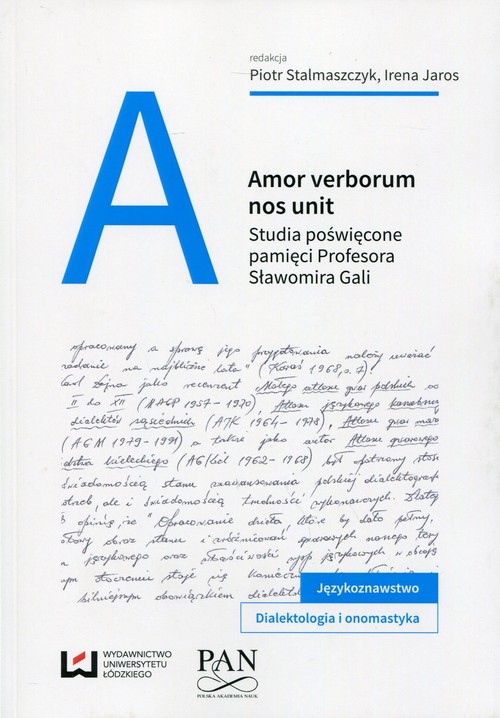 redakcja
Piotr Stalmaszczyk, Irena Jaros
A
Amor verborum
nos unit
Studia poświęcone
pamięci Profesora
Sławomira Gali
opracowany a sprawę jego przygotowania należy uważać
zadanie na najbliższe lata" (Karaś 1968, s. 7).
Karol Dejna jako recenzent Małego atlasu gwar polskich
II do XII (MAGP 1957-1970), Atlasu językowego kaszubszczyzny
dialektów sąsiednich (AJK 1964-1978), Atlasu gwar
(AGM 1979-1991) a także jako autor Atlasu gwarowego
kieleckiego (AGKiel 1962-1968) był opatrzony
świadomością stanu zaawansowania polskiej
ale i świadomością trudności wykonawczych. Dlatego
opinię, że "Opracowanie dzieła, które by dało pełny,
obraz stanu i zróżnicowań gwarowych naszego
językowego oraz właściwości językowych w
stoczeniu staje się
obowiązkiem
Językoznawstwo
Dialektologia i onomastyka
WYDAWNICTWO
UNIWERSYTETU
ŁÓDZKIEGO
PAN
POLSKA AKADEMIA NAUK